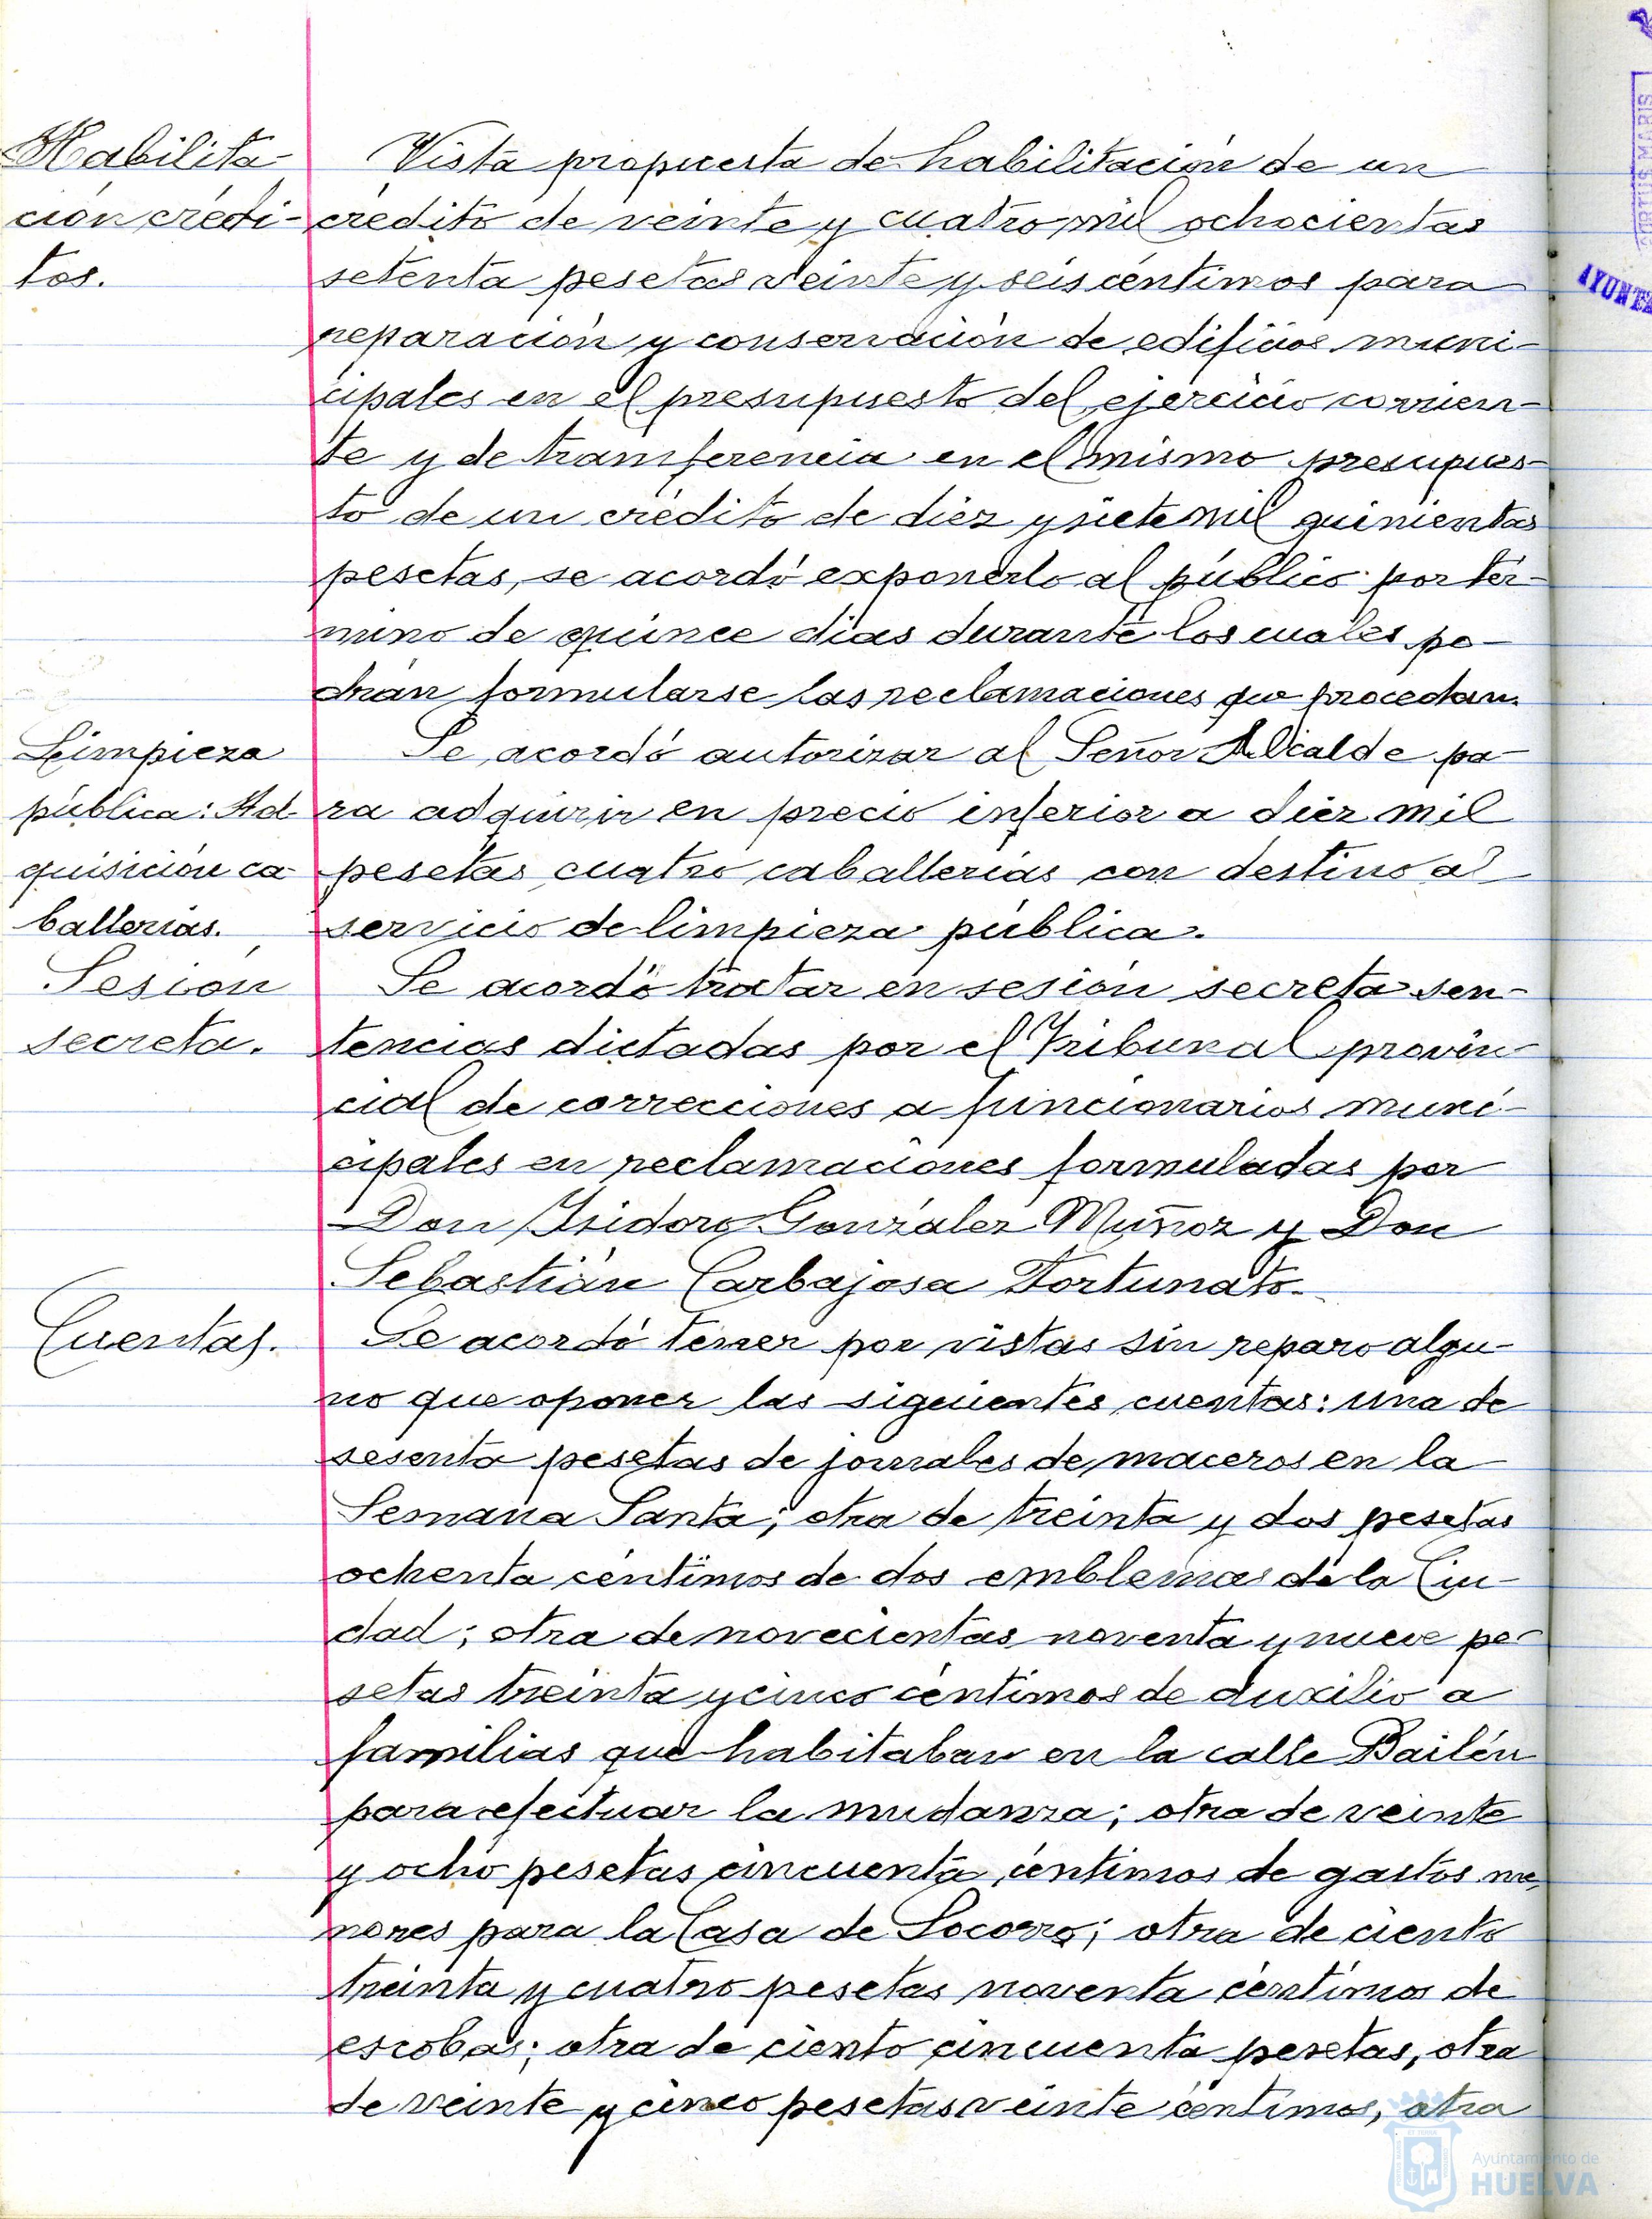 Habilita-
ción crédi-
tos.
Vista propuesta de habilitación de un
crédito de veinte y cuatro mil ochocientas
setenta pesetas veinte y seis céntimos para
reparación y conservación de edificios muni-
cipales en el presupuesto del ejercicio corrien-
te y de transferencia en el mismo presupues-
to de un crédito de diez y siete mil quinientas
pesetas, se acordó exponerlo al público por tér-
mino de quince días durante los cuales po-
drán formularse las reclamaciones que procedan.
Limpieza
pública: Ad-
quisición ca-
ballerías.
Se acordó autorizar al Señor Alcalde pa-
ra adquirir en precio inferior a diez mil
pesetas cuatro caballerías con destino al
servicio de limpieza pública.
Sesión
secreta.
Se acordó tratar en sesión secreta sen-
tencias dictadas por el Tribunal provin-
cial de correcciones a funcionarios muni-
cipales en reclamaciones formuladas por
Don Isidoro González Muñoz y Don
Sebastián Carbajosa Fortunato.
Cuentas.
Se acordó tener por vistas sin reparo algu-
no que oponer las siguientes cuentas: una de
sesenta pesetas de jornales de maceros en la
Semana Santa; otra de treinta y dos pesetas
ochenta céntimos de dos emblemas de la Ciu-
dad; otra de novecientas noventa y nueve pe-
setas treinta y cinco céntimos de auxilio a
familias que habitaban en la calle Bailén
para efectuar la mudanza; otra de veinte
y ocho pesetas cincuenta céntimos de gastos me-
nores para la Casa de Socorro; otra de ciento
treinta y cuatro pesetas noventa céntimos de
escobas; otra de ciento cincuenta pesetas, otra
de veinte y cinco pesetas veinte céntimos, otra
AYUNTA
Ayuntamiento de
HUELVA